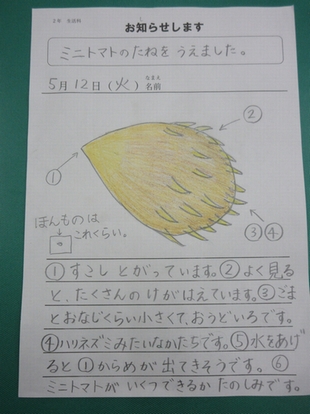 2年 生活科
お知らせします
ミニトマトのたねを うえました。
5月12日(火) 名前
なまえ
②
①
③④
ほんものは
これくらい。
①すこし とがっています。②よく見る
と、たくさんの けが はえています。③ごま
とおなじくらい小さくて、おうどいろです。
④ハリネズミみたいなかたちです。⑤水をあげ
ると①からめが出てきそうです。⑥
ミニトマトが いくつできるか たのしみです。